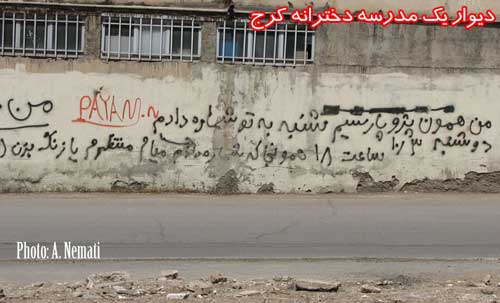 دیوار یک مدرسه دخترانه کرج
من همون پژو پارسیم شنبه به تو شماره دادم
دوشنبه
ساعت ۱۸ همونجا که شماره دادم میام منتظرم یا زنگ بزن
من
PAYAM.N
Photo: A. Nemati